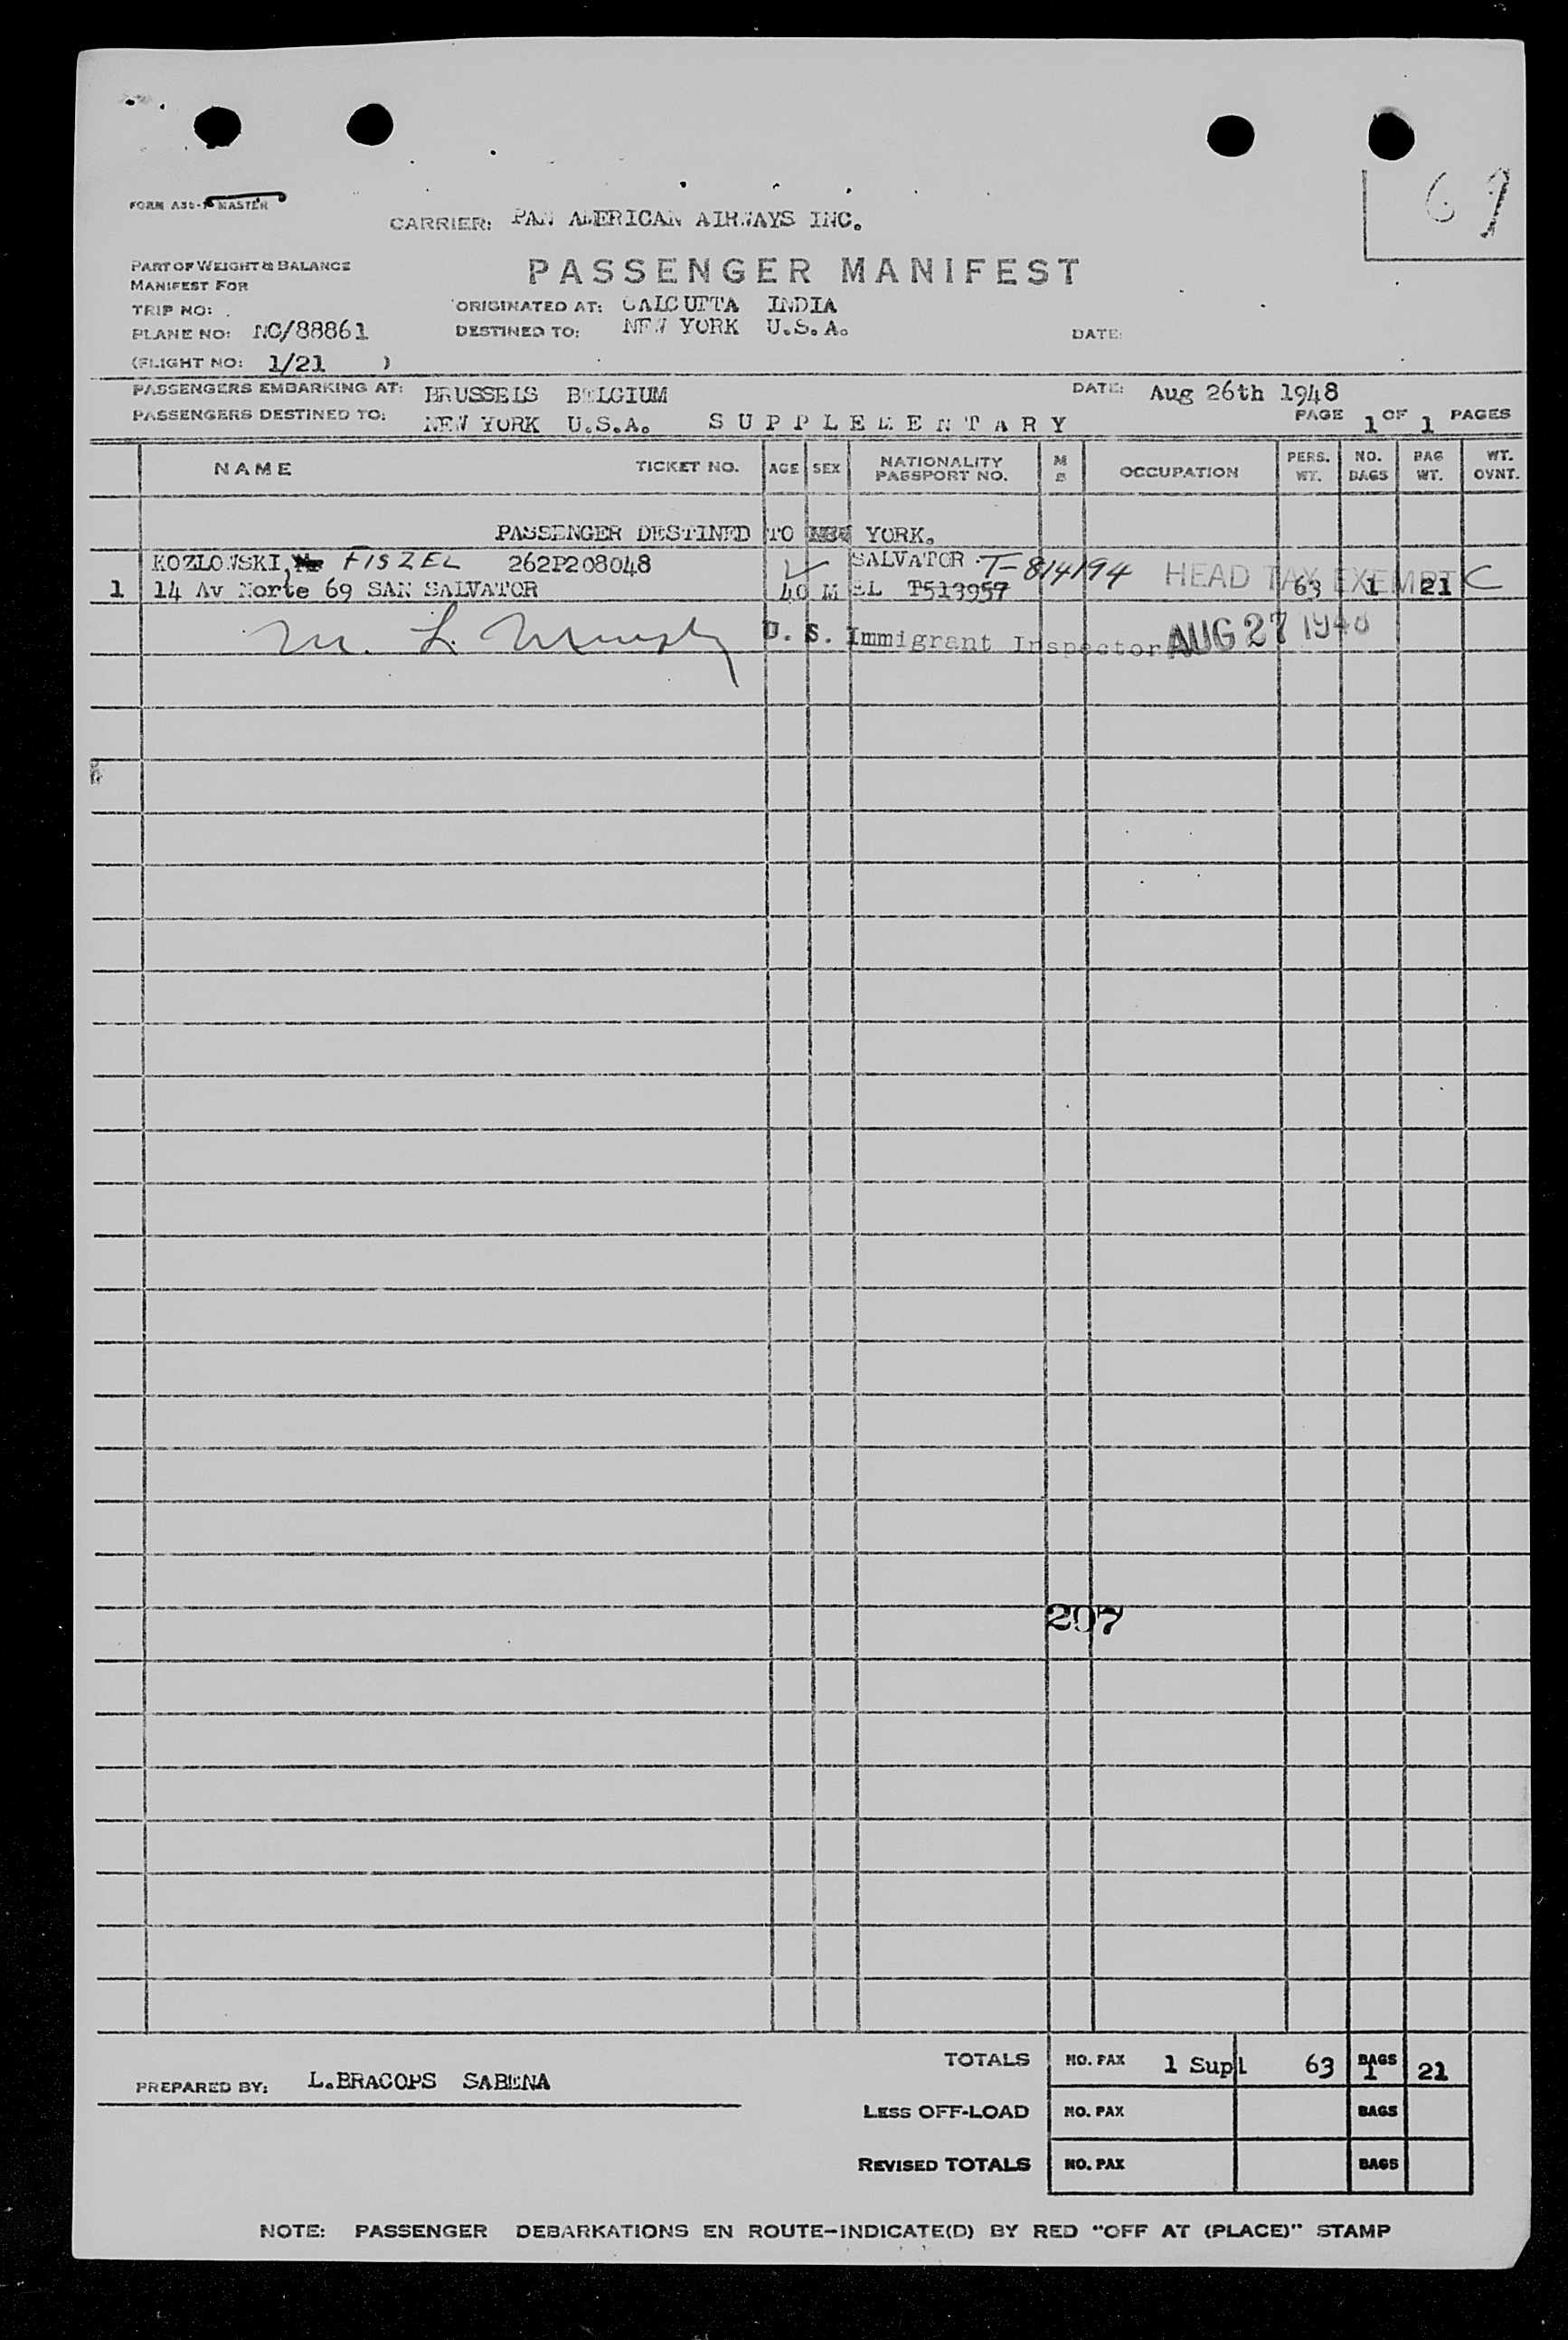 69
FORM A36- MASTER
CARRIER: PAN AMERICAN AIRWAYS INC.
PART OF WEIGHT & BALANCE
MANIFEST FOR
PASSENGER MANIFEST
TRIP NO:
ORIGINATED AT: CALCUTTA INDIA
PLANE NO: NC/88861
DESTINED TO: NEW YORK U.S.A.
DATE:
(FLIGHT NO: 1/21 )
PASSENGERS EMBARKING AT: BRUSSELS BELGIUM
DATE: Aug 26th 1948
PASSENGERS DESTINED TO: NEW YORK U.S.A. SUPPLEMENTARY
PAGE 1 OF 1 PAGES
NAME TICKET NO. AGE SEX NATIONALITY PASSPORT NO. M S OCCUPATION PERS. WT. NO. BAGS BAG WT. WT. OVNT.
PASSENGER DESTINED TO NEW YORK.
KOZLOWSKI, Mr FISZEL 262P208048 SALVATOR T-814194 HEAD TAX EXEMPT C
1 14 Av Norte 69 SAN SALVATOR 40 M EL P513957 63 1 21
M. L. U. S. Immigrant Inspector AUG 27 1948
207
TOTALS NO. PAX 1 Supl 63 BAGS 1 21
PREPARED BY: L.BRACOPS SABENA
LESS OFF-LOAD NO. PAX BAGS
REVISED TOTALS NO. PAX BAGS
NOTE: PASSENGER DEBARKATIONS EN ROUTE-INDICATE(D) BY RED "OFF AT (PLACE)" STAMP